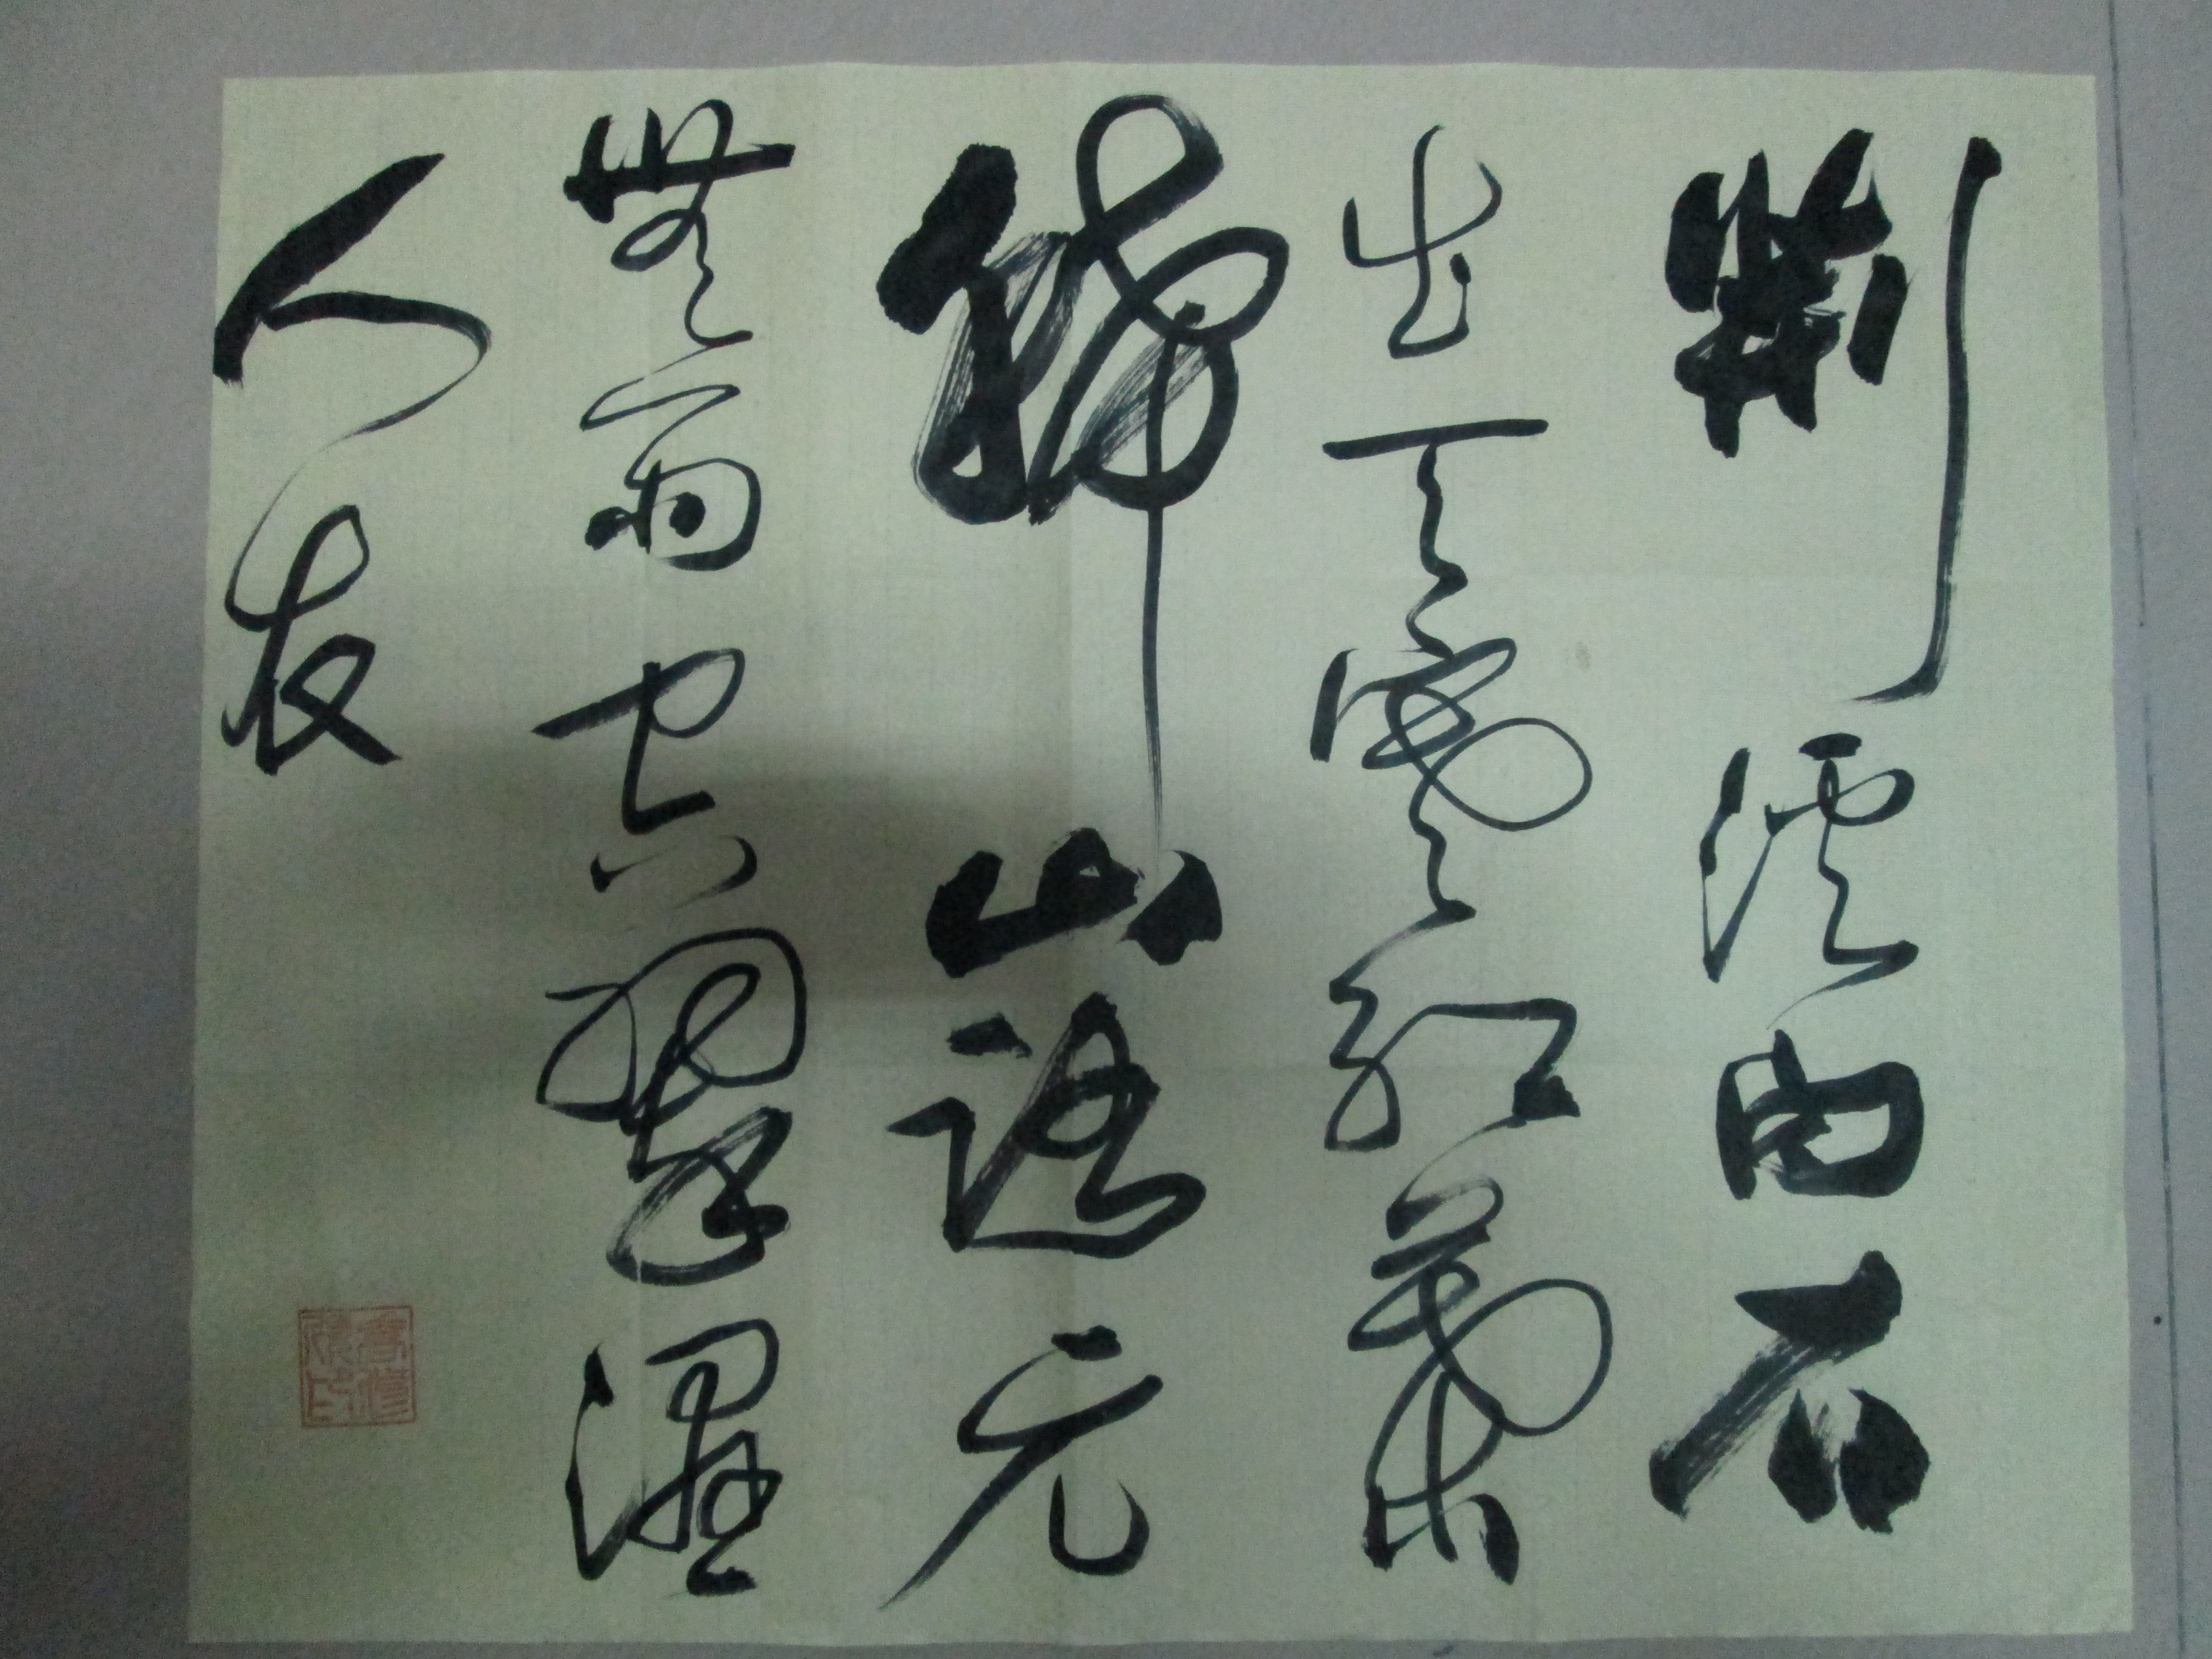 荊溪白石
出天寒紅葉
稀山路元
無雨空翠濕
人衣